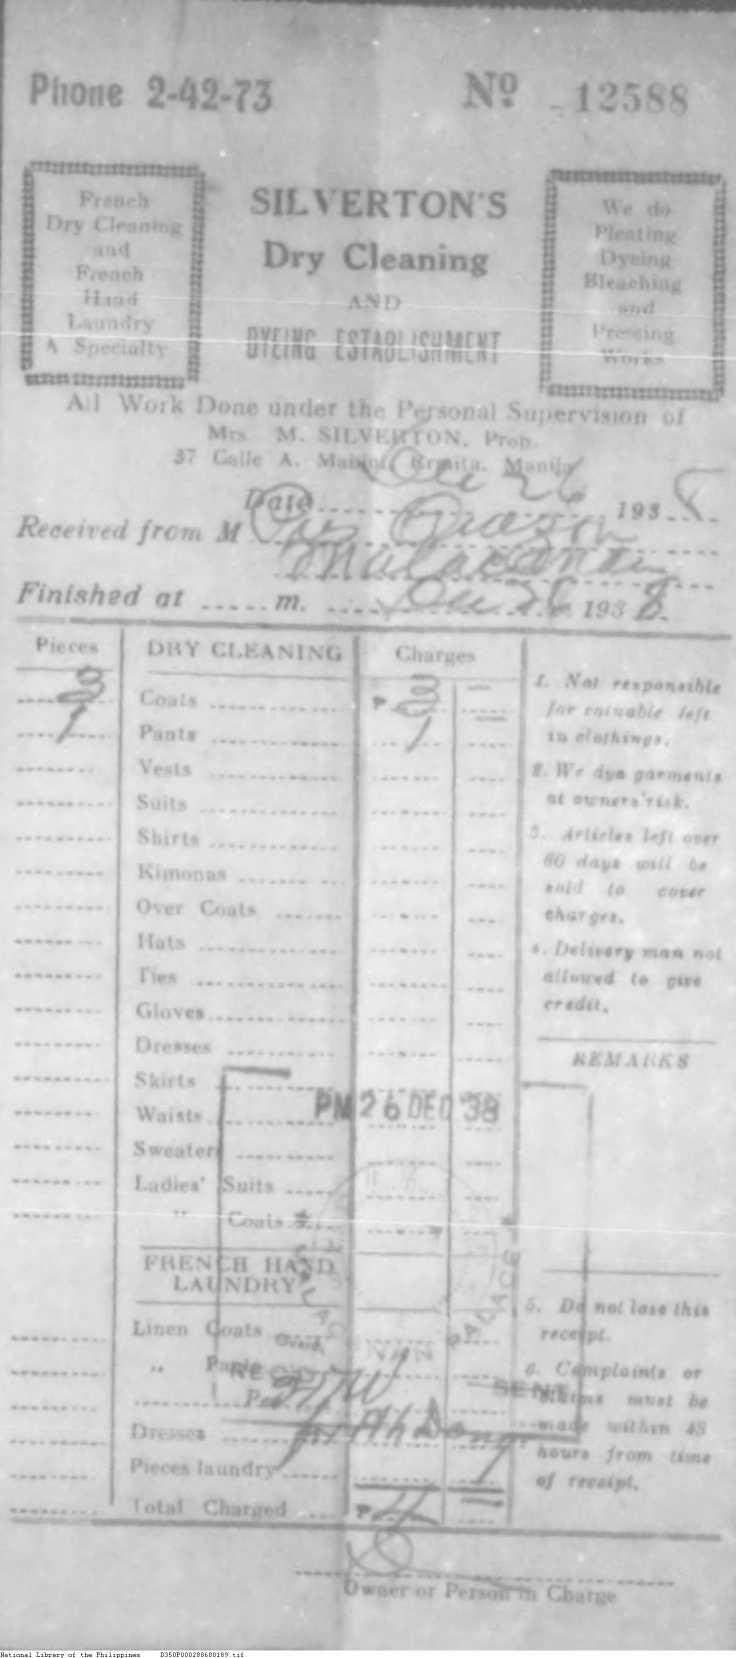 Phone 2-42-73
Nº 12588
French
Dry Cleaning
and
French
Hand
Laundry
A Specialty
SILVERTON'S
Dry Cleaning
AND
DYEING ESTABLISHMENT
We do
Pleating
Dyeing
Bleaching
and
Pressing
Works
All Work Done under the Personal Supervision of
Mrs. M. SILVERTON, Prop.
37 Calle A. Mabini, Ermita, Manila
Date Dec 26 1938
Received from M
Finished at m. Dec 26 1938
Pieces DRY CLEANING Charges
3 Coats P 3 —
1 Pants 1 —
Vests
Suits
Shirts
Kimonas
Over Coats
Hats
Ties
Gloves
Dresses
Skirts
Waists
Sweater
Ladies' Suits
" Coats
FRENCH HAND
LAUNDRY
Linen Coats
" Pants
Dresses
Pieces laundry
Total Charged P 4 —
1. Not responsible
for valuable left
in clothings.
2. We dye garments
at owners' risk.
3. Articles left over
60 days will be
sold to cover
charges.
4. Delivery man not
allowed to give
credit.
REMARKS
5. Do not lose this
receipt.
6. Complaints or
claims must be
made within 48
hours from time
of receipt.
PM 26 DEC 38
REC'D
SENT
Owner or Person in Charge
National Library of the Philippines D350P000288680189.tif